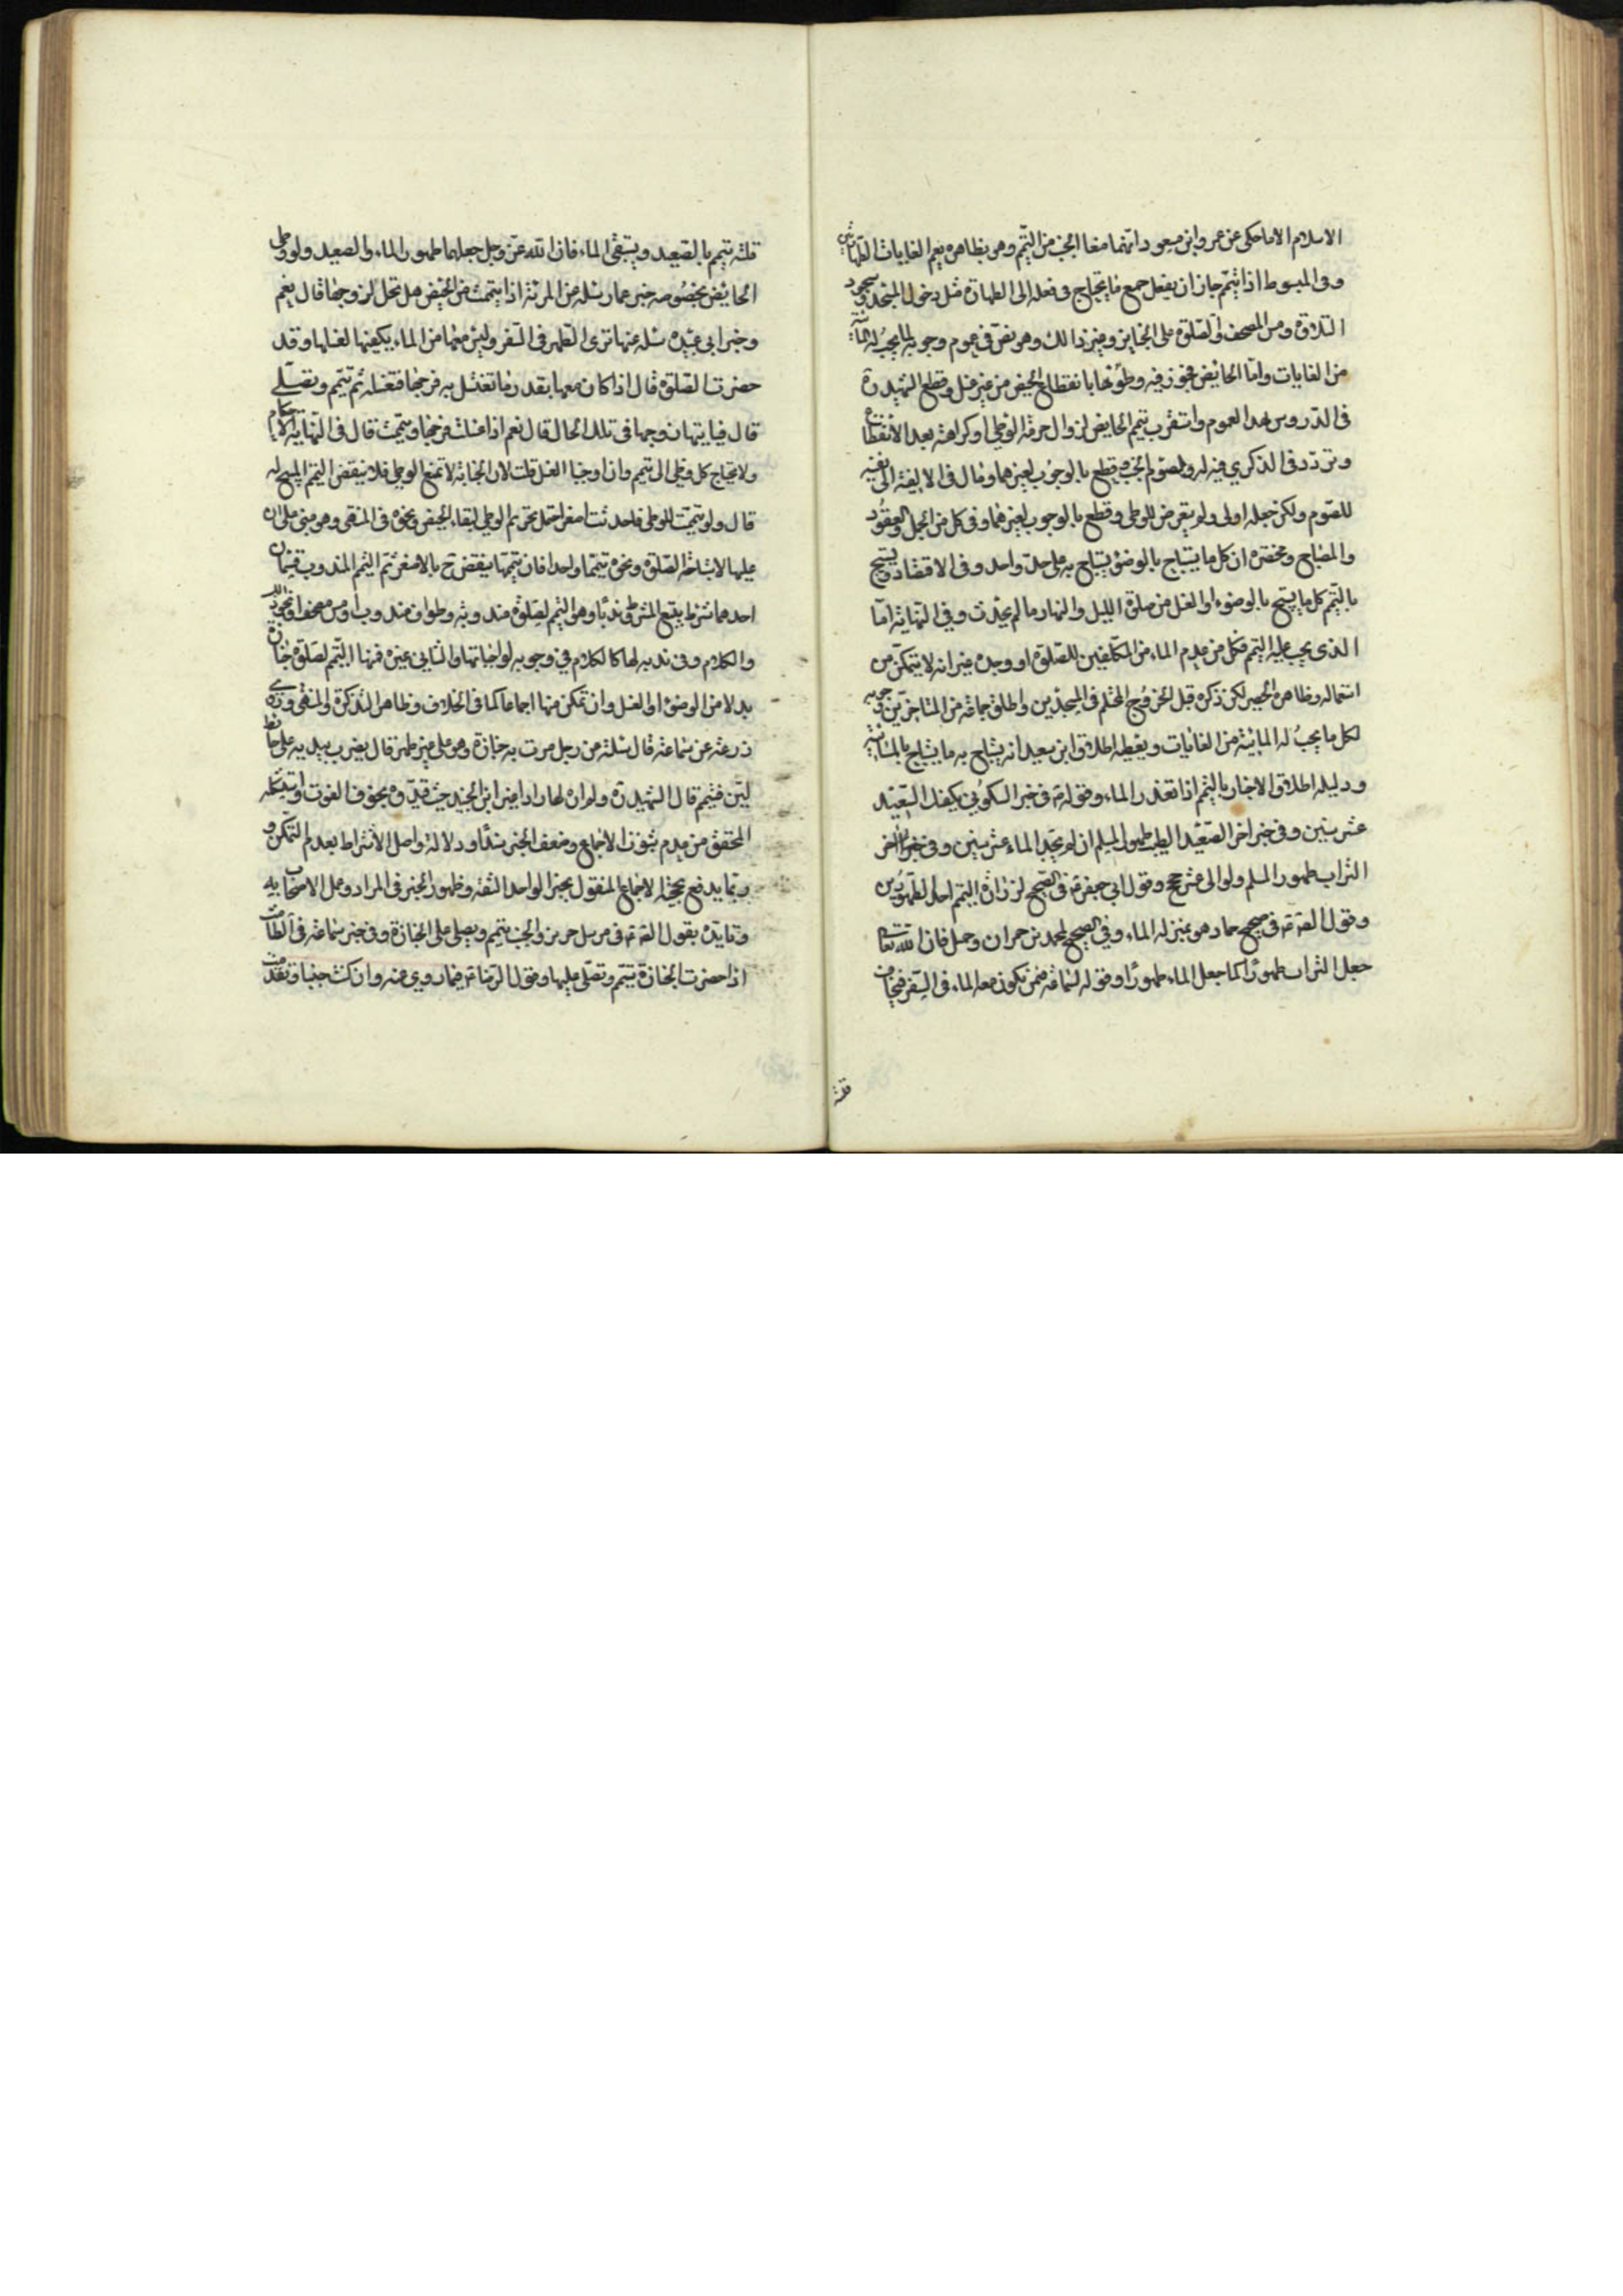 الاسلام الا ما حكى عن عمر وابن مسعود انهما منعا الجنب من التيمم وهو بظاهره يعم الغايات
وفى المبسوط اذا تيمم جاز ان يفعل جميع ما يحتاج فى فعله الى الطهارة مثل دخول المسجد وسجود
التلاوة ومس المصحف والصلوة على الجنايز وغير ذالك وهو نص فى عموم وجوبه لما يجب له
من الغايات واما الحايض فجوز فيه وطؤها بانقطاع الحيض من غير غسل وقطع الشهيد ره
فى الدروس بهذا العموم واستقرب تيمم الحايض لزوال حرمة الوطى او كراهته بعد الانقطاع
وتردد فى الذكرى فيه له ولصوم الجنب وقطع بالوجوب لغيرهما ومال فى الالفية الى نفيه
للصوم ولكن جعله اولى ولم يتعرض للوطى وقطع بالوجوب لغيرهما وفى كل من الجمل والعقود
والمصباح ومختصره ان كل ما يستباح بالوضوء يستباح به على حد واحد وفى الاقتصاد ويستبيح
بالتيمم كل ما يستبيح بالوضوء او الغسل من صلوة الليل والنهار ما لم يحدث وفى النهاية اما
الذى يجب عليه التيمم فكل من عدم الماء من المكلفين للصلوة او وجده غير انه لا يتمكن من
استعماله وظاهره الحصر لكن ذكره قبل لخروج المحتلم فى المسجدين واطلق جماعة من المتاخرين وجوبه
لكل ما يجب له المائية من الغايات ويعطيه اطلاق ابن سعيد انه يستباح به ما يستباح بالمائية
ودليله اطلاق الاخبار بالتيمم اذا تعذر الماء وقوله ع فى خبر السكونى يكفيك الصعيد
عشر سنين وفى خبر اخر الصعيد الطيب طهور المسلم ان لم يجد الماء عشر سنين وفى خبر اخر
التراب طهور المسلم ولو الى عشر حجج وقول ابى جعفر ع فى الصحيح لزرارة التيمم احد الطهورين
وقول الصه ع فى صحيح حماد هو بمنزلة الماء وفى الصحيح لمحمد بن حمران وجميل فان الله تعالى
جعل التراب طهورا كما جعل الماء طهورا وقوله لسماعة فيمن يكون معه الماء فى السفر فيخاف
قلته
قلته تيمم بالصعيد ويستبقى الماء فان الله عز وجل جعلهما طهورا الماء والصعيد ولوطى
الحايض بخصوصه خبر عمار سئله عن المرئة اذا تيممت من الحيض هل تحل لزوجها قال نعم
وخبر ابى عبيدة سئله عنها ترى الطهر فى السفر وليس معها من الماء يكفيها لغسلها وقد
حضرت الصلوة قال اذا كان معها بقدر ما تغسل به فرجها فتغسله ثم تتيمم وتصلى
قال فياتيها زوجها فى تلك الحال قال نعم اذا غسلت فرجها وتيممت قال فى النهاية الاحكام
ولا يحتاج كل وطى الى تيمم وان اوجبنا الغسل قلت لان الجنابة لا تمنع الوطى فلا ينقض التيمم المبيح له
قال ولو تيممت للوطى فاحدثت اصغر احتمل تحريم الوطى لبقاء الحيض ونحوه فى المنتهى وهو مبنى على ان
عليها لاستباحة الصلوة ونحوه تيمما واحدا فان تيممها ينقض ح بالاصغر ثم التيمم المندوب قسمان
احدهما شرط يتبع المشروط ندبا وهو التيمم لصلوة مندوبة وطواف مندوب او مس مصحف
والكلام فى ندبه لها كالكلام فى وجوبه لواجباتها والثانى غيره فمنها التيمم لصلوة جنازة
بدلا من الوضوء او الغسل وان تمكن منها اجماعا كما فى الخلاف وظاهر التذكرة والمنتهى وروى
زرعة عن سماعة قال سئلته عن رجل مرت به جنازة وهو على غير طهر قال يضرب بيديه على حائط
لبن فتيمم قال الشهيد ره ولم اره لها رادا غير ابن الجنيد حيث قيده بخوف الفوت
المحقق من عدم ثبوت الاجماع وضعف الخبر سندا ودلالة واصل الاشتراط بعدم التمكن و
ربما يدفع بحجية الاجماع المنقول بخبر الواحد الثقة وظهور الخبر فى المراد وعمل الاصحاب به
وتايده بقول الصه ع فى مرسل حريز والجنب يتيمم ويصلى على الجنازة وفى خبر سماعة فى الطامث
اذا حضرت الجنازة تتيمم وتصلى عليها وقول الرضا ع فيما روى عنه وان كنت جنبا وتقدمت